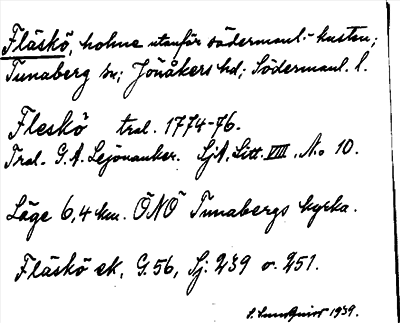 Fläskö, holme utanför södermanl. kusten;
Tunaberg sn; Jönåkers hd; Södermanl. l.
Fleskö tral. 1774-76.
Tral. G. A. Lejonanker. SjA, Litt. VIII, No 10.
Läge 6,4 km. ÖNÖ Tunabergs kyrka.
Fläskö ek, G. 56, Sj: 239 o. 251.
1939.